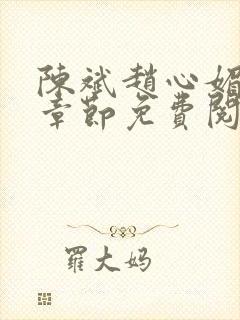 陳斌趙心媚
章節免費閱
羅大媽